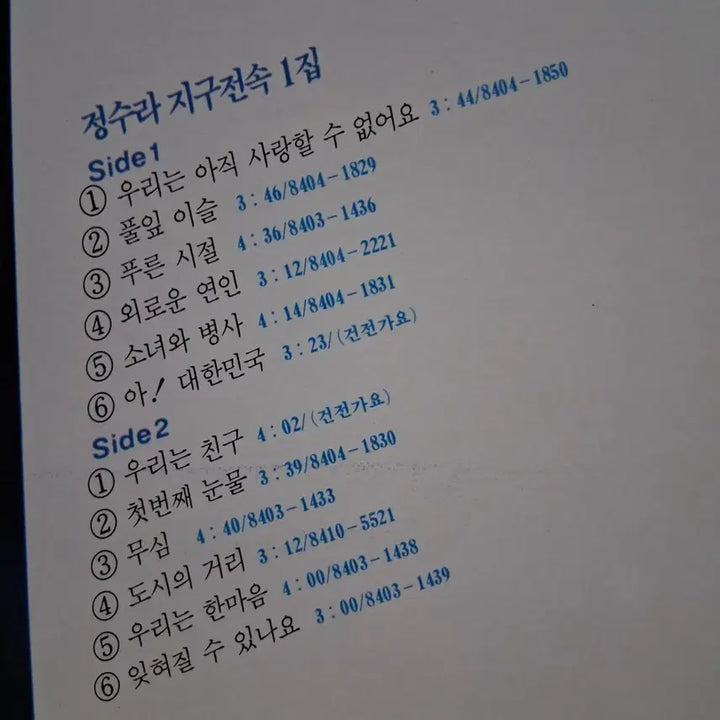 정수라 지구전속 1집
Side1
① 우리는 아직 사랑할 수 없어요 3:44/8404-1850
② 풀잎 이슬 3:46/8404-1829
③ 푸른 시절 4:36/8403-1436
④ 외로운 연인 3:12/8404-2221
⑤ 소녀와 병사 4:14/8404-1831
⑥ 아! 대한민국 3:23/(건전가요)
Side2
① 우리는 친구 4:02/(건전가요)
② 첫번째 눈물 3:39/8404-1830
③ 무심 4:40/8403-1433
④ 도시의 거리 3:12/8410-5521
⑤ 우리는 한마음 4:00/8403-1438
⑥ 잊혀질 수 있나요 3:00/8403-1439